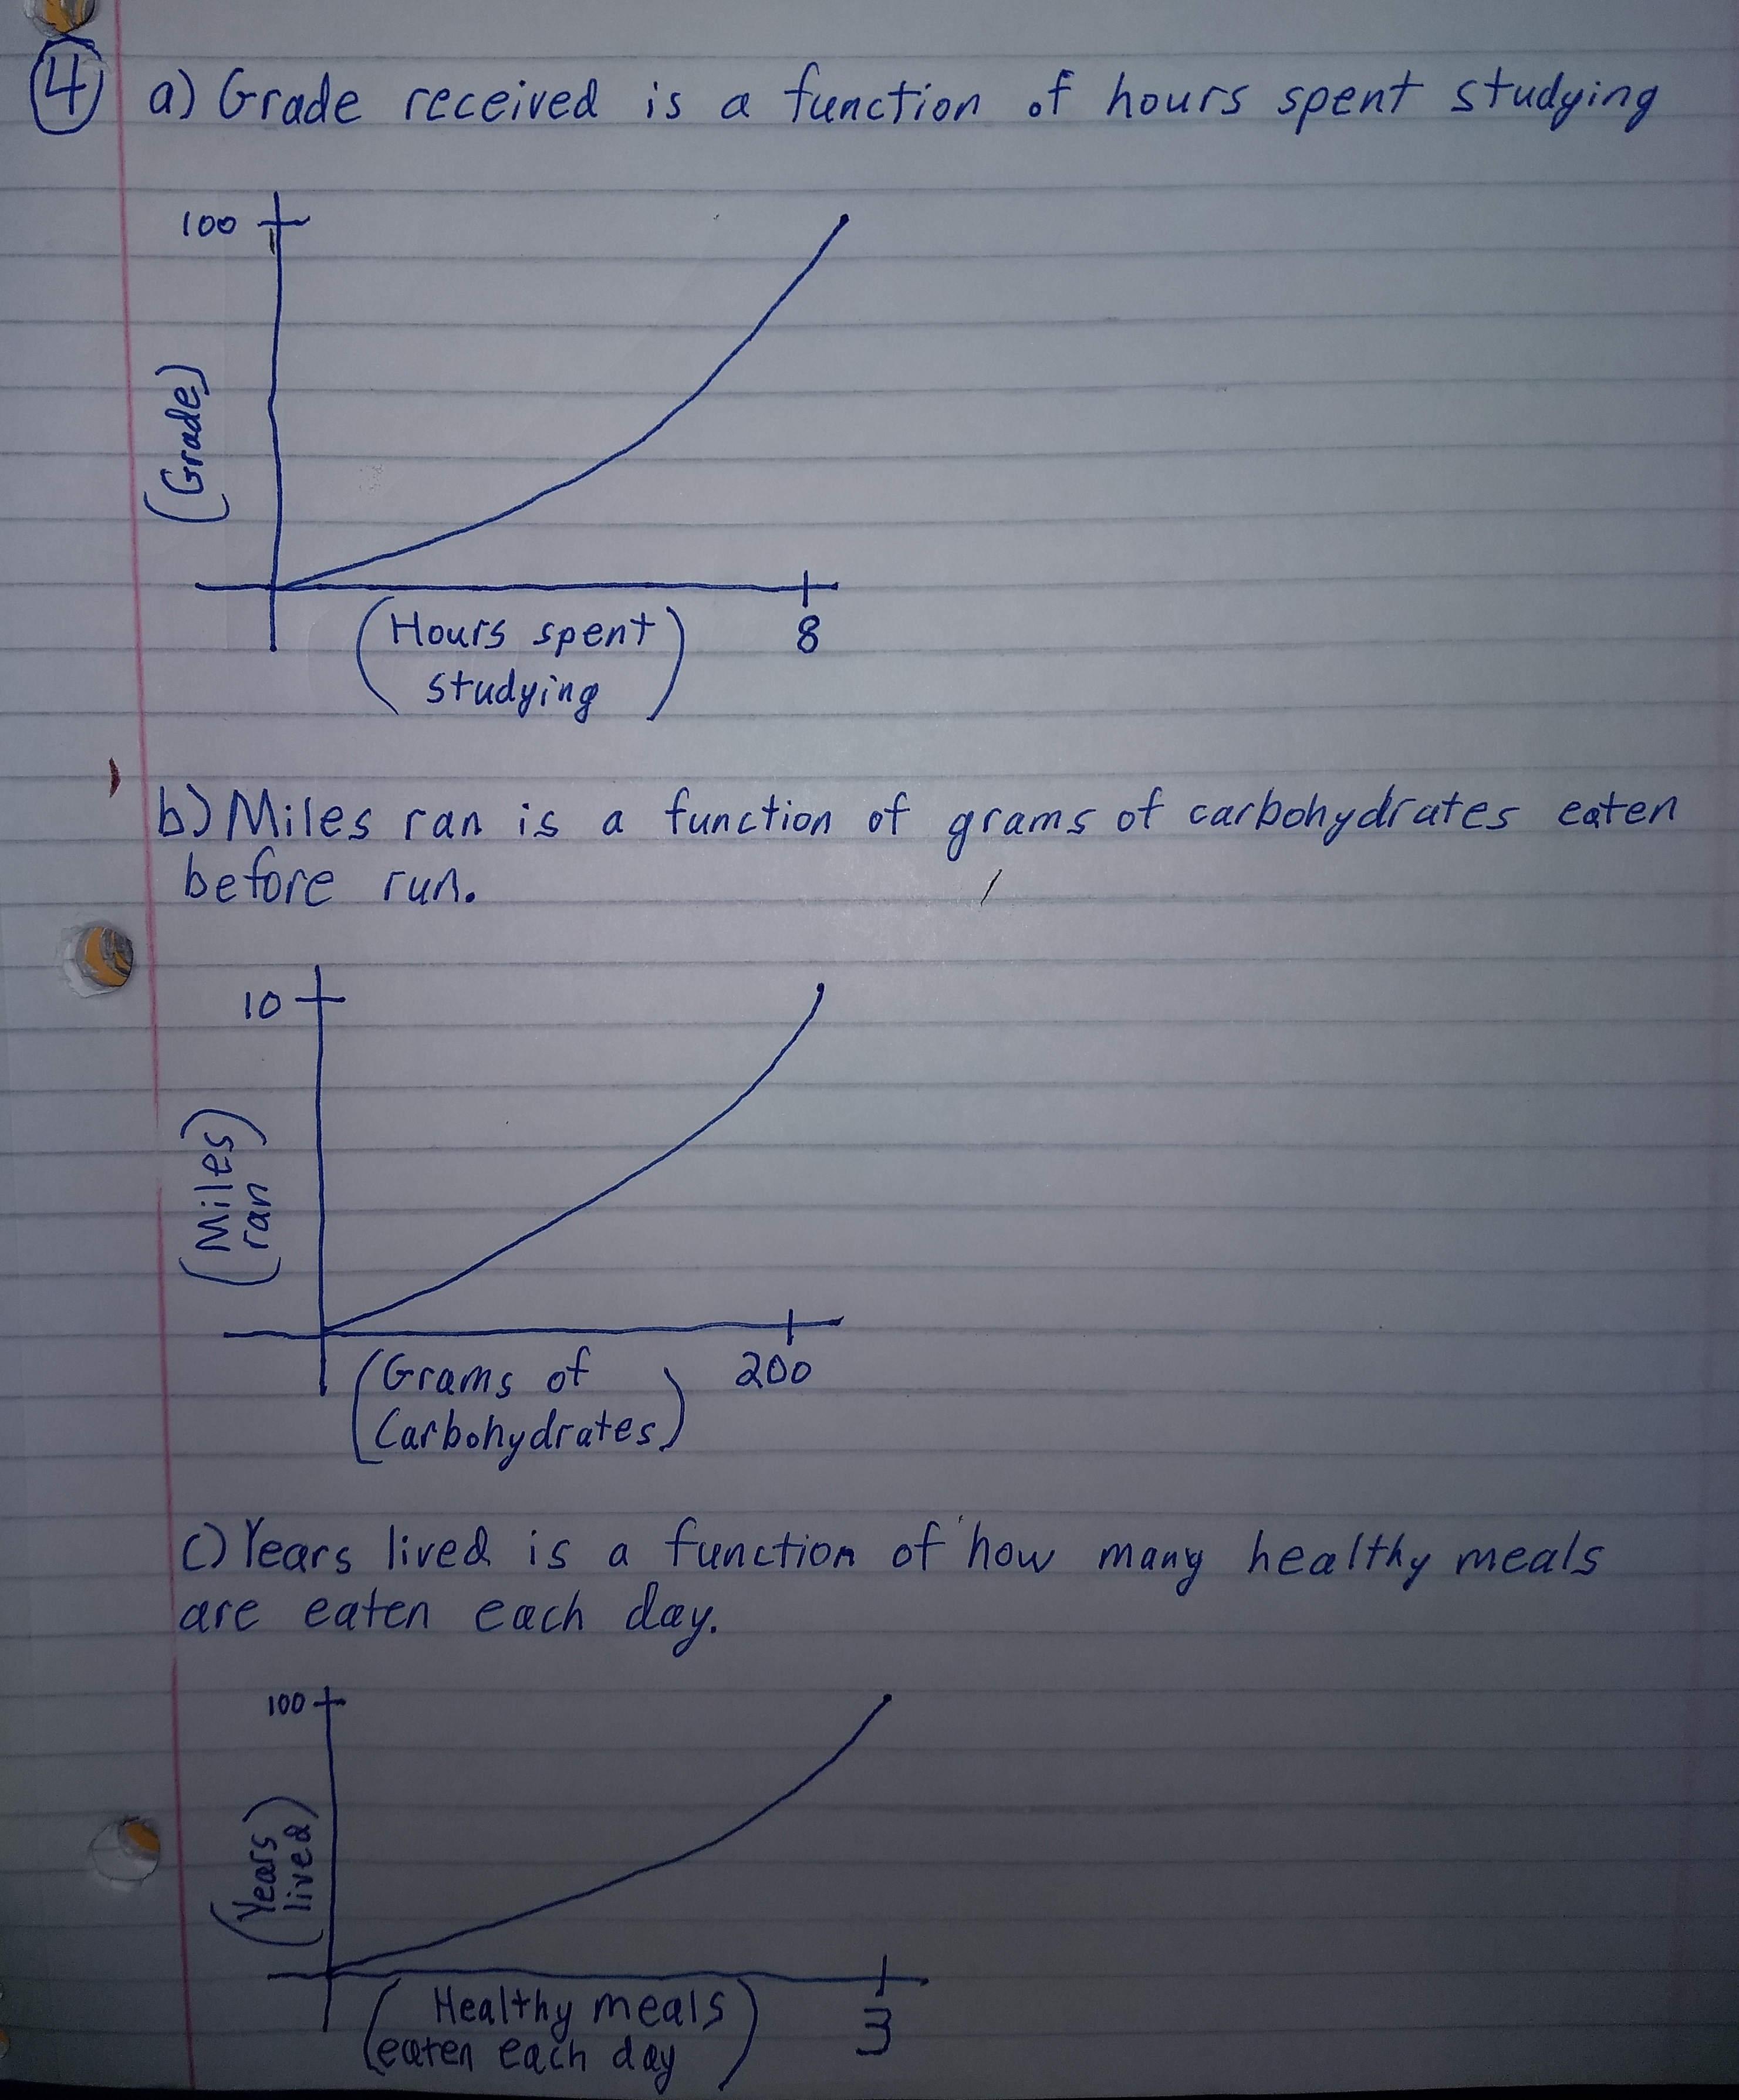 4 a) Grade received is a function of hours spent studying
100
(Grade)
(Hours spent
studying)
8
b) Miles ran is a function of grams of carbohydrates eaten
before run.
10
(Miles
ran)
(Grams of
Carbohydrates)
200
c) Years lived is a function of how many healthy meals
are eaten each day.
100
(Years
lived)
(Healthy meals
eaten each day)
3